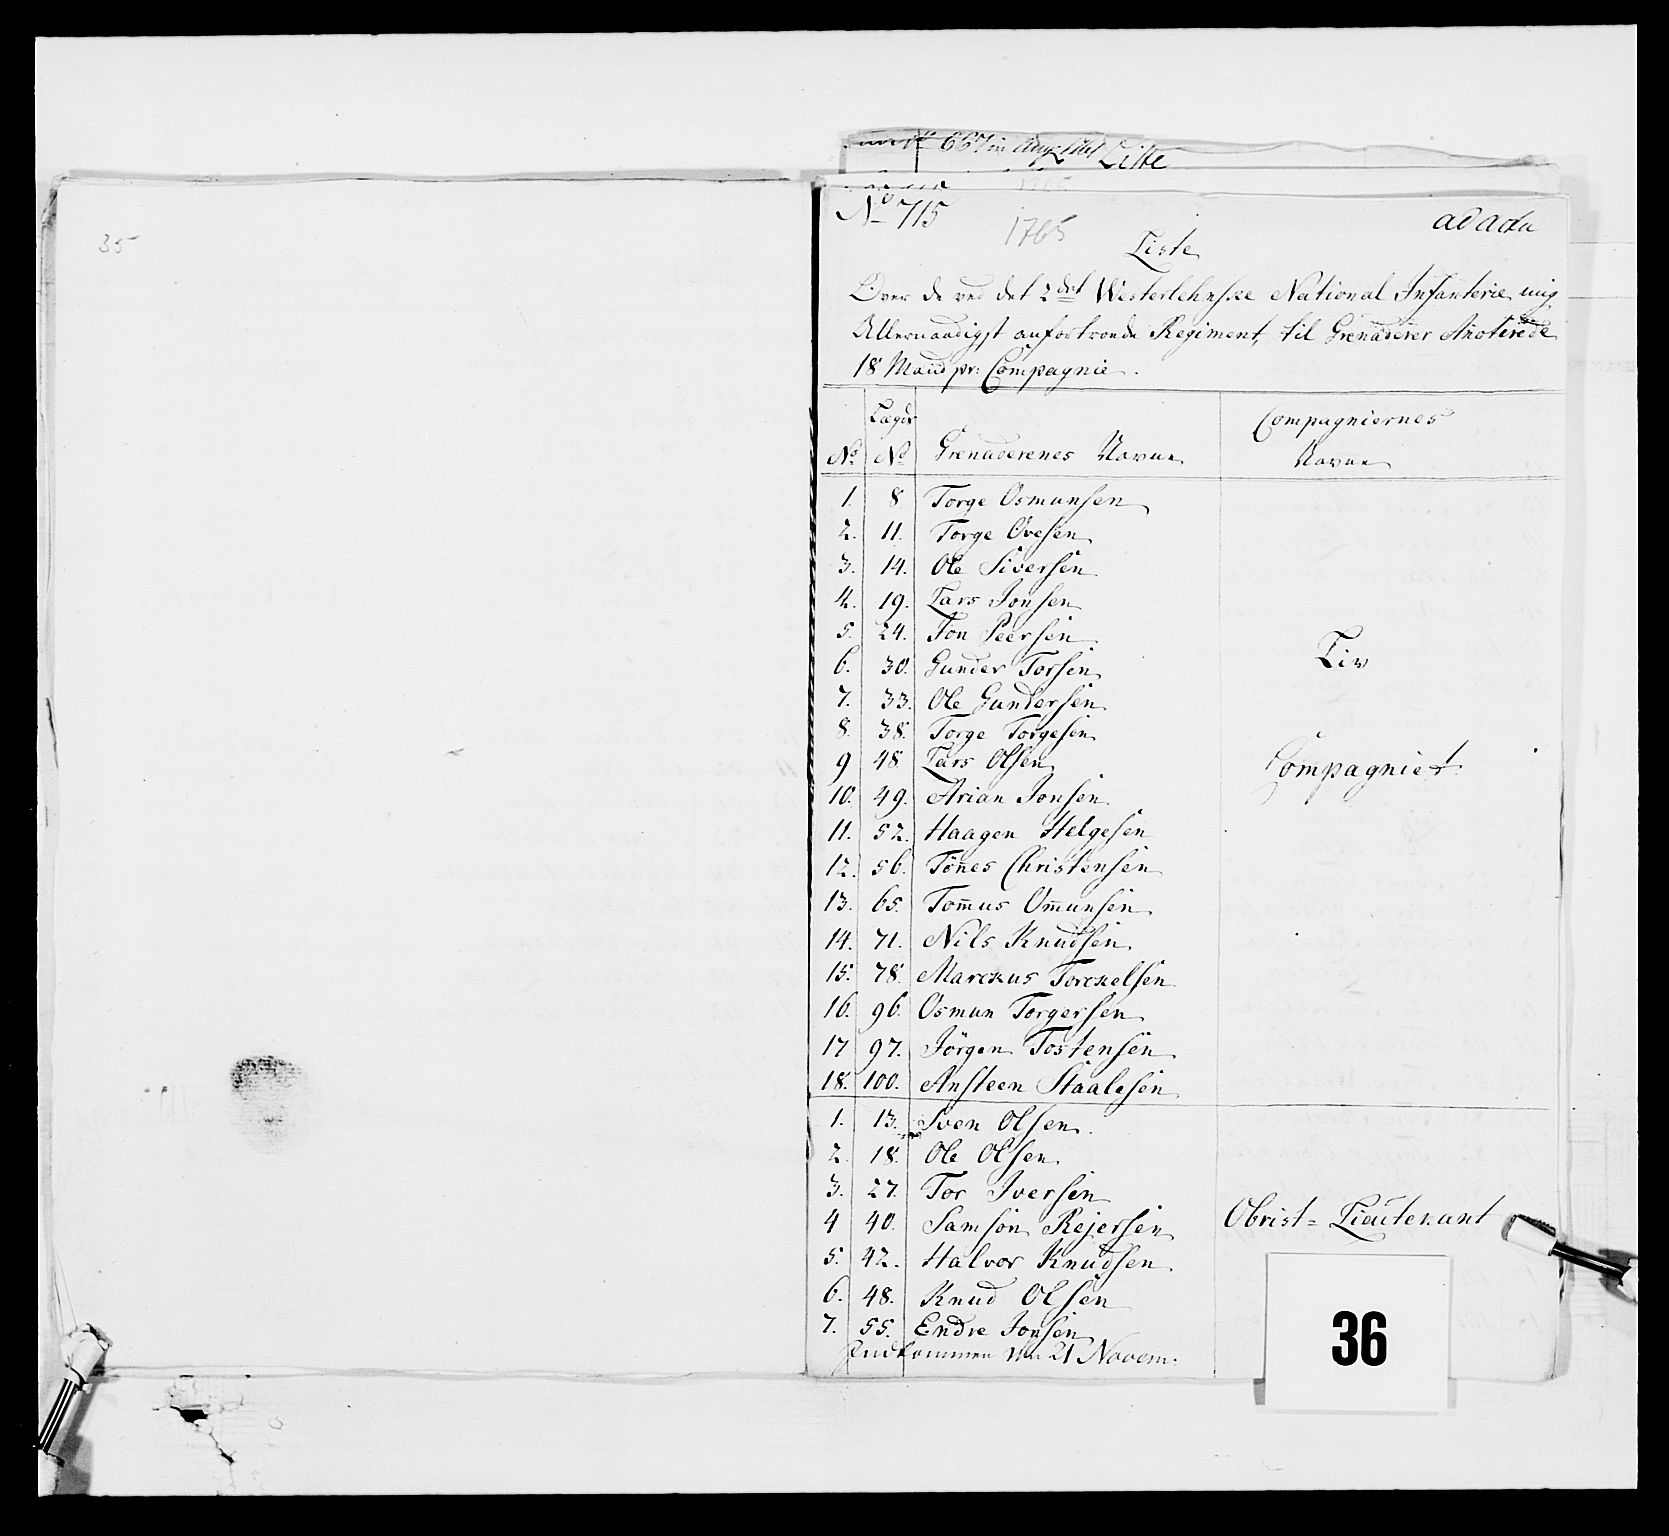 35
667 in Aug: 1761 Liste
No 715
1765
ad acta
Liste
Over de ved det 2det Westerlehnske National Infanterie mig
Allernaadigst anfortroede Regiment, til Grenaderer Anoterede
18 Mand pr: Compagnie.
Lægds Compagniernes
No No Grenaderenes Navne Navne
1. 8 Torge Osmunsen
2. 11. Torge Ovesen
3. 14. Ole Siversen
4. 19. Lars Jonsen
5. 24. Jon Peersen
6. 30. Gunder Torsen Liv
7. 33. Ole Gundersen
8. 38. Torge Torgesen
9 48 Lars Olsen Compagniet
10. 49. Arian Jonsen
11. 52. Haagen Helgesen
12. 56. Tönes Christensen
13. 65. Tom̅us Om̅unsen
14. 71. Nils Knudsen
15. 78. Marckus Torckelsen
16. 96. Osmun Torgersen
17 97. Jörgen Tostensen
18. 100. Ansteen Staalesen
1. 13. Sven Olsen
2. 18. Ole Olsen
3. 27. Tor Iversen
4 40. Samson Rejersen Obrist= Lieutenant
5. 42. Halvor Knudsen
6. 48. Knud Olsen
7. 55. Endre Jonsen
Indkommen den 21 Novem:
36